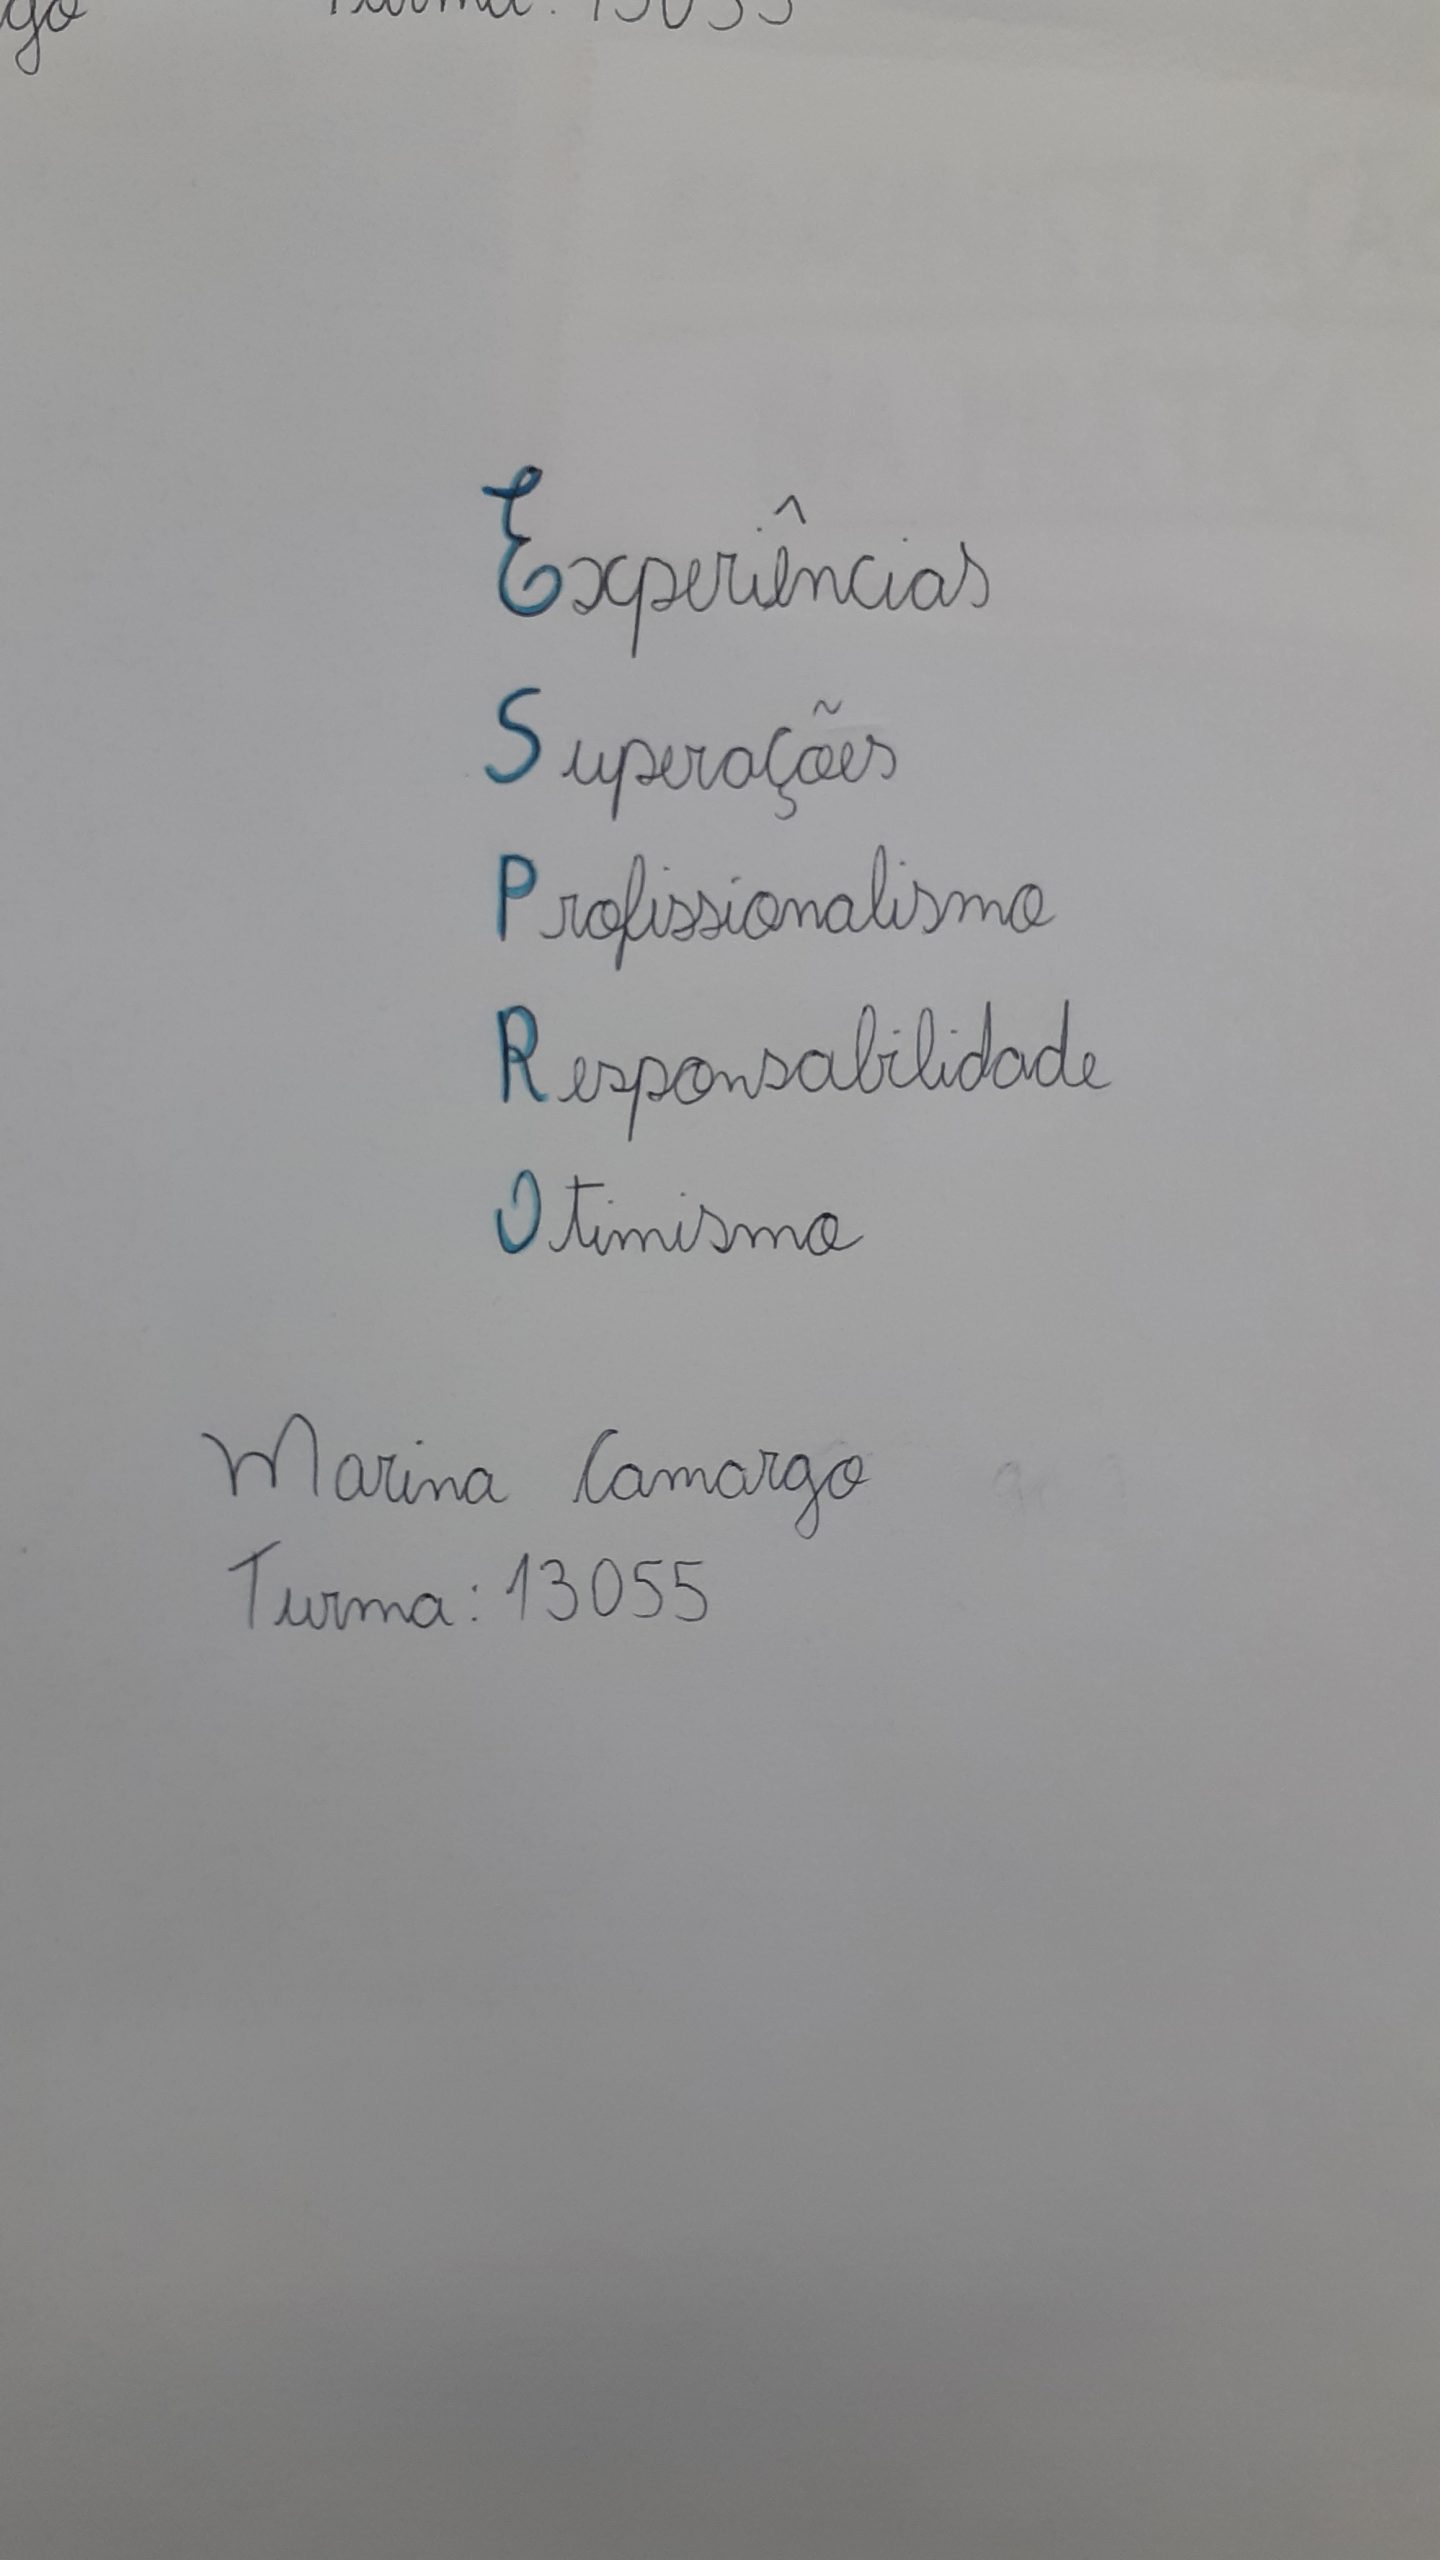 Turma: 13055
Experiências
Superações
Profissionalismo
Responsabilidade
Otimismo
Marina Camargo
Turma: 13055